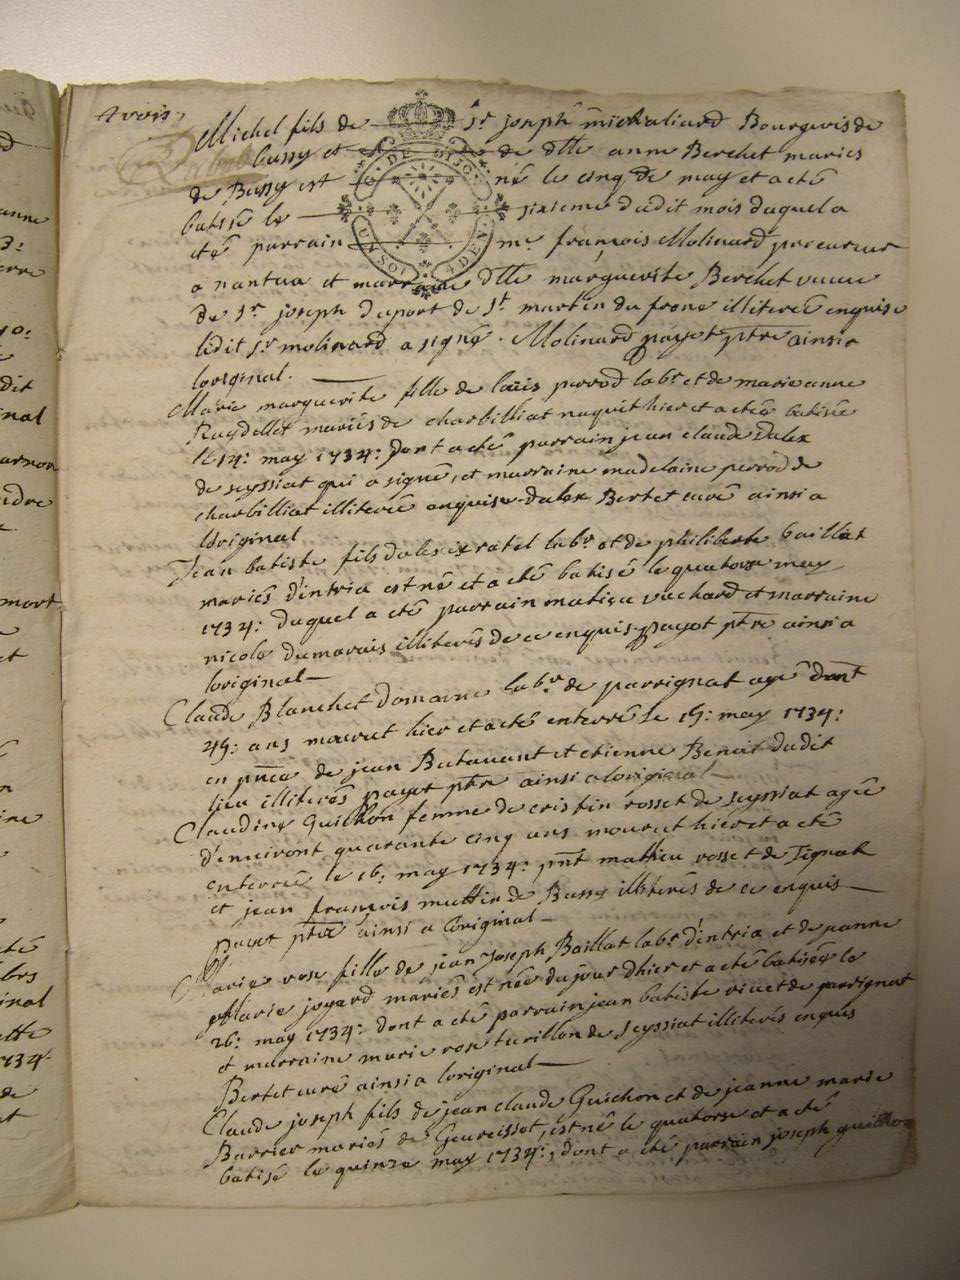 Michel fils de Sr joseph michaliard Bourgeois de
bussy et de dlle anne Berchet maries
de Bussy est né le cinq de may et a eté
batisé le sixieme dudit mois duquel a
eté parrain me françois Molinard procureur
a nantua et marraine dlle marguerite Berchet veuve
de Sr joseph duport de St martin du frene illiterée enquise
ledit Sr molinard a signé. Molinard payet ptre ainsi a
loriginal.
Marie marguerite fille de loüis perrod labr et de marie anne
Reydellet mariés de charbilliat naquit hier et a etée batisée
le 14: may 1734: dont a eté parrain jean claude Dalex
de seyssiat qui a signé, et marraine madelaine perrod de
charbilliat illiterée enquise. dalex Bertet curé ainsi a
loriginal
Jean batiste fils dalexis ratel labr et de philiberte baillat
mariés d'intria est né et a eté batisé le quatorse may
1734: duquel a eté parrain matieu vuchard et marraine
nicole dumarais illiterés de ce enquis. payet ptre ainsi a
loriginal
Claude Blanchet domaine labr de parrignat agé dont
45: ans mourut hier et a eté enterré le 15: may 1734:
en pnce de jean Butavant et etienne Benoit dudit
lieu illiterés payet ptre ainsi a loriginal
Claudine Guichon femme de cristin rosset de seyssiat agée
d'enuiront quarante cinq ans mourut hier et a eté
enterrée le 16: may 1734: pnt mathieu rosset de Tignat
et jean françois muttin de Bussy illiterés de ce enquis
payet ptre ainsi a loriginal
Marie rose fille de jean joseph Baillat labr d'intria et de jeanne
Marie joyard mariés est née du jour d'hier et a eté batisée le
26: may 1734: dont a eté parrain jean batiste rivet de parrignat
et marraine marie rose turillon de seyssiat illiterés enquis
Bertet curé ainsi a loriginal
Claude joseph fils de jean claude Guichon et de jeanne marie
Barrier mariés de Geureissot, est né le quatorse et a eté
batisé le quinze may 1734:, dont a eté parrain joseph guichon